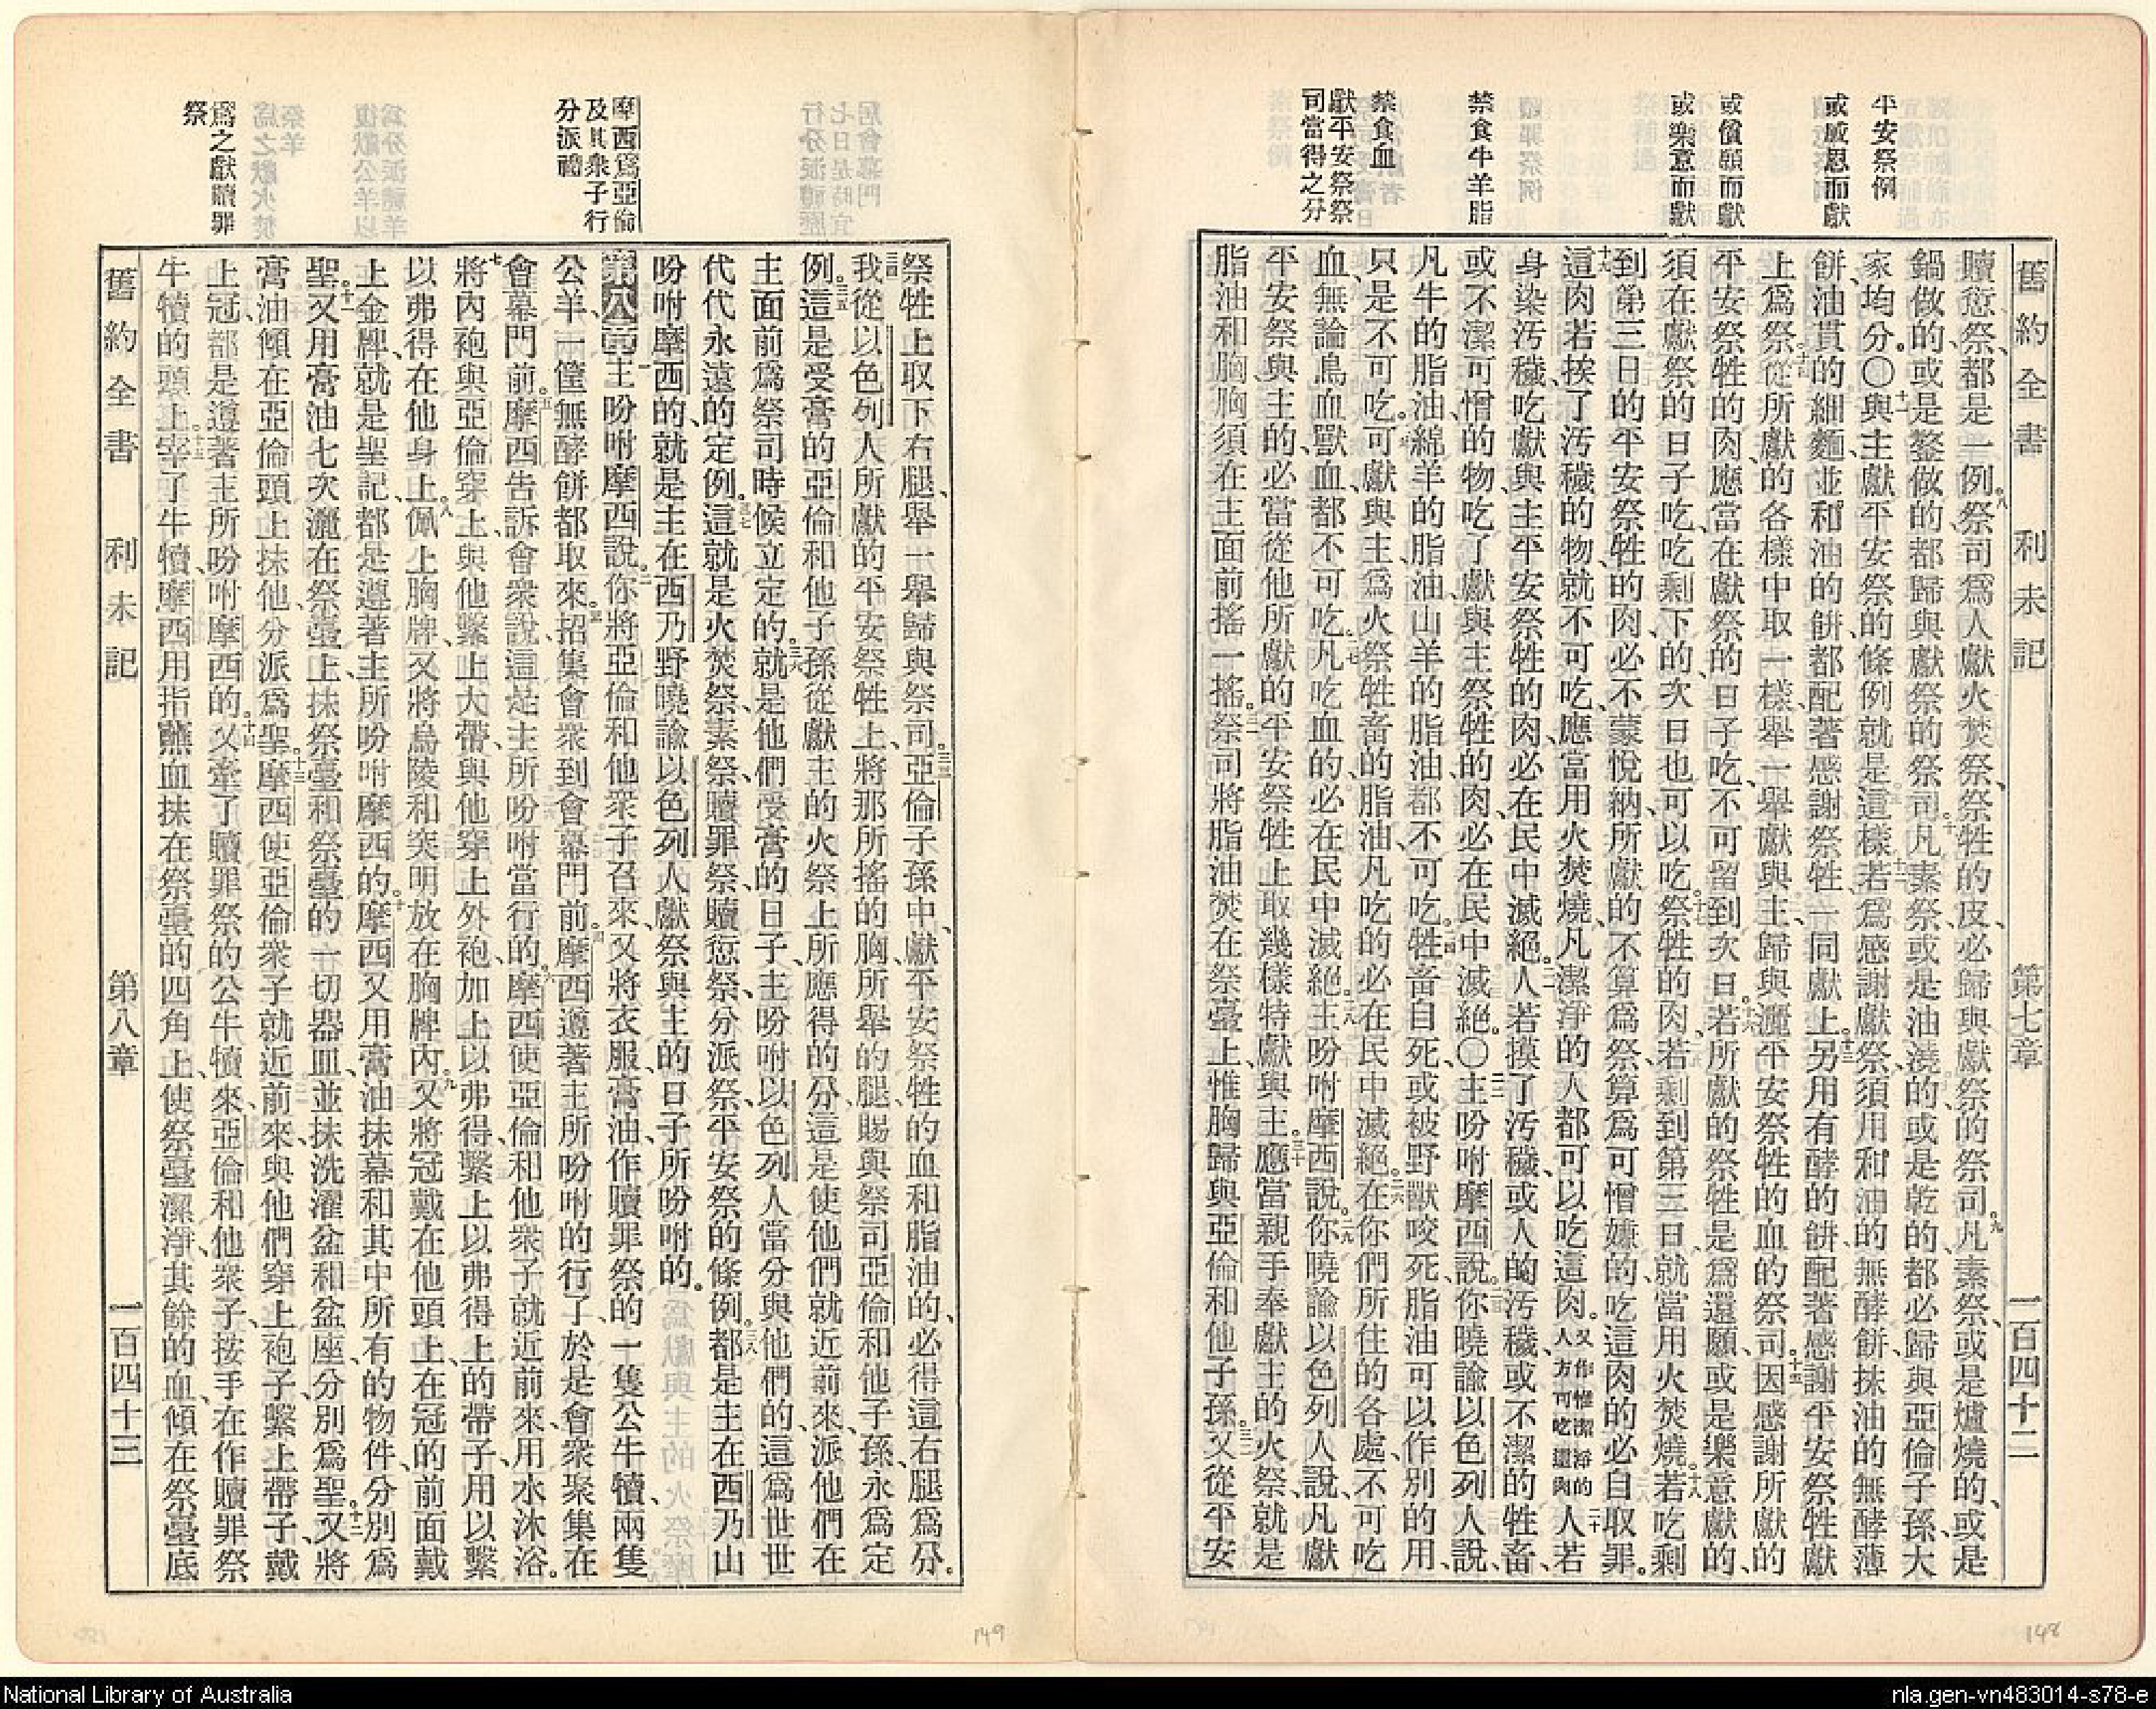 平安祭例
或感恩而獻
或償願而獻
或樂意而獻
禁食牛羊脂
禁食血
獻平安祭祭
司當得之分
舊約全書 利未記 第七章 一百四十二
贖愆祭、都是一例。八祭司爲人獻火焚祭、祭牲的皮、必歸與獻祭的祭司。九凡素祭、或是爐燒的、或是
鍋做的、或是鏊做的、都歸與獻祭的祭司。十凡素祭、或是油澆的、或是乾的、都必歸與亞倫子孫、大
家均分。〇十一與主獻平安祭的條例就是這樣、十二若爲感謝獻祭、須用和油的無酵餅、抹油的無酵薄
餅、油貫的細麵、並和油的餅、都配著感謝祭牲、一同獻上。十三另用有酵的餅、配著感謝平安祭牲獻
上爲祭。十四從所獻的各樣中取一樣、舉一舉獻與主、歸與灑平安祭牲的血的祭司。十五因感謝所獻的
平安祭牲的肉、應當在獻祭的日子吃、不可留到次日。十六若所獻的祭牲、是爲還願、或是樂意獻的、
須在獻祭的日子吃、吃剩下的、次日也可以吃。十七祭牲的肉、若剩到第三日、就當用火焚燒。十八若吃剩
到第三日的平安祭牲的肉、必不蒙悅納、所獻的不算爲祭、算爲可憎嫌的、吃這肉的必自取罪。
十九這肉若挨了汚穢的物、就不可吃、應當用火焚燒、凡潔淨的人都可以吃這肉。又作惟潔淨的人方可吃這肉二十人若
身染汚穢、吃獻與主平安祭牲的肉、必在民中滅絕。二一人若摸了汚穢、或人的汚穢、或不潔的牲畜、
或不潔可憎的物、吃了獻與主祭牲的肉、必在民中滅絕。〇二二主吩咐摩西說、二三你曉諭以色列人說、
凡牛的脂油、綿羊的脂油、山羊的脂油、都不可吃。二四牲畜自死、或被野獸咬死、脂油可以作別的用、
只是不可吃。二五可獻與主、爲火祭牲畜的脂油、凡吃的必在民中滅絕。二六在你們所住的各處、不可吃
血、無論鳥血獸血、都不可吃。二七凡吃血的、必在民中滅絕。二八主吩咐摩西說、二九你曉諭以色列人說、凡獻
平安祭與主的、必當從他所獻的平安祭牲上、取幾樣特獻與主。三十應當親手奉獻主的火祭、就是
脂油和胸、胸須在主面前搖一搖。三一祭司將脂油焚在祭臺上、惟胸歸與亞倫和他子孫。三二又從平安
148
摩西爲亞倫
及其衆子行
分派禮
爲之獻贖罪
祭
祭牲上取下右腿、舉一舉歸與祭司。三三亞倫子孫中、獻平安祭牲的血和脂油的、必得這右腿爲分。
三四我從以色列人所獻的平安祭牲上、將那所搖的胸所舉的腿、賜與祭司亞倫和他子孫、永爲定
例。三五這是受膏的亞倫和他子孫、從獻主的火祭上所應得的分、這是使他們就近前來、派他們在
主面前爲祭司時候立定的。三六就是他們受膏的日子、主吩咐以色列人當分與他們的、這爲世世
代代永遠的定例。三七這就是火焚祭、素祭、贖罪祭、贖愆祭、分派祭、平安祭的條例。三八都是主在西乃山
吩咐摩西的、就是主在西乃野、曉諭以色列人獻祭與主的日子所吩咐的。
第八章 一主吩咐摩西說、二你將亞倫和他衆子召來、又將衣服、膏油、作贖罪祭的一隻公牛犢、兩隻
公羊、一筐無酵餅都取來、三招集會衆到會幕門前。四摩西遵著主所吩咐的行了、於是會衆聚集在
會幕門前。五摩西告訴會衆說、這是主所吩咐當行的。六摩西使亞倫和他衆子就近前來、用水沐浴。
七將內袍與亞倫穿上、與他繫上大帶、與他穿上外袍、加上以弗得、繫上以弗得上的帶子、用以繫
以弗得在他身上。八佩上胸牌、又將烏陵和突明放在胸牌內。九又將冠戴在他頭上、在冠的前面戴
上金牌、就是聖記、都是遵著主所吩咐摩西的。十摩西又用膏油抹幕和其中所有的物件、分別爲
聖。十一又用膏油七次灑在祭臺上、抹祭臺和祭臺的一切器皿、並抹洗濯盆和盆座、分別爲聖。十二又將
膏油傾在亞倫頭上抹他、分派爲聖。十三摩西使亞倫衆子就近前來、與他們穿上袍子、繫上帶子、戴
上冠、都是遵著主所吩咐摩西的。十四又牽了贖罪祭的公牛犢來、亞倫和他衆子、按手在作贖罪祭
牛犢的頭上。十五宰了牛犢、摩西用指蘸血抹在祭臺的四角上、使祭臺潔淨、其餘的血、傾在祭臺底
舊約全書 利未記 第八章 一百四十三
149
National Library of Australia
nla.gen-vn483014-s78-e